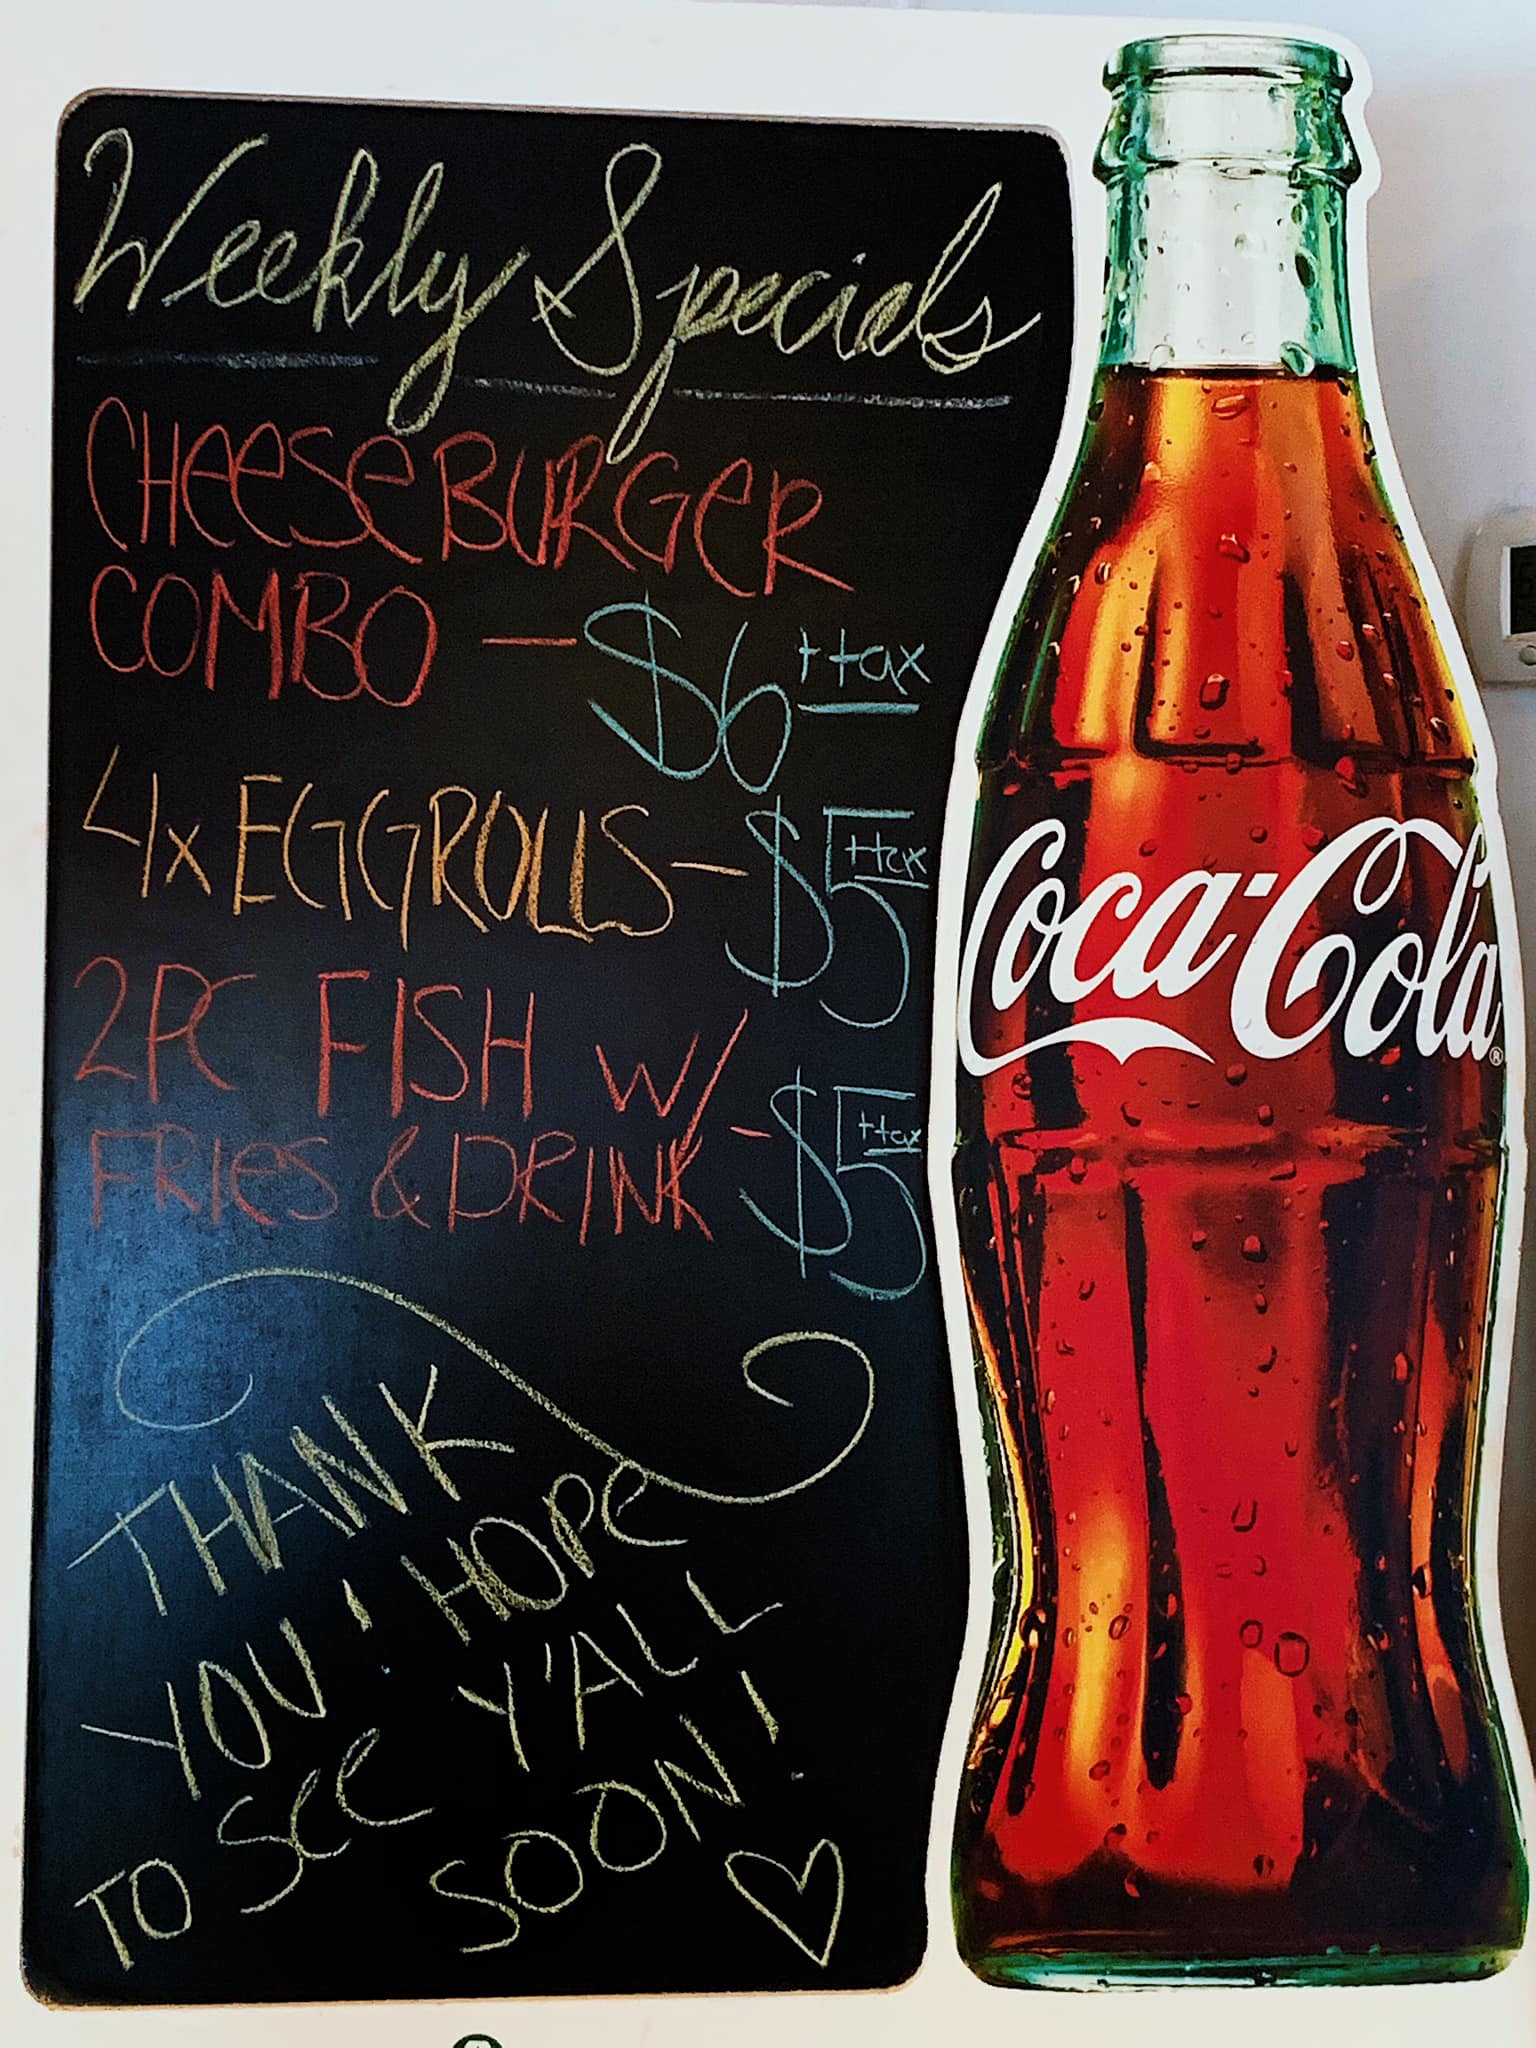 Weekly Specials
CHeeSeBURGeR
COMBO — $6 +tax
4x EGGROLLS — $5 +tax
2PC FISH W/
FRIeS & DRINK - $5 +tax
THANK
YOU! HOPe
TO See Y'ALL
SOON!
Coca-Cola®